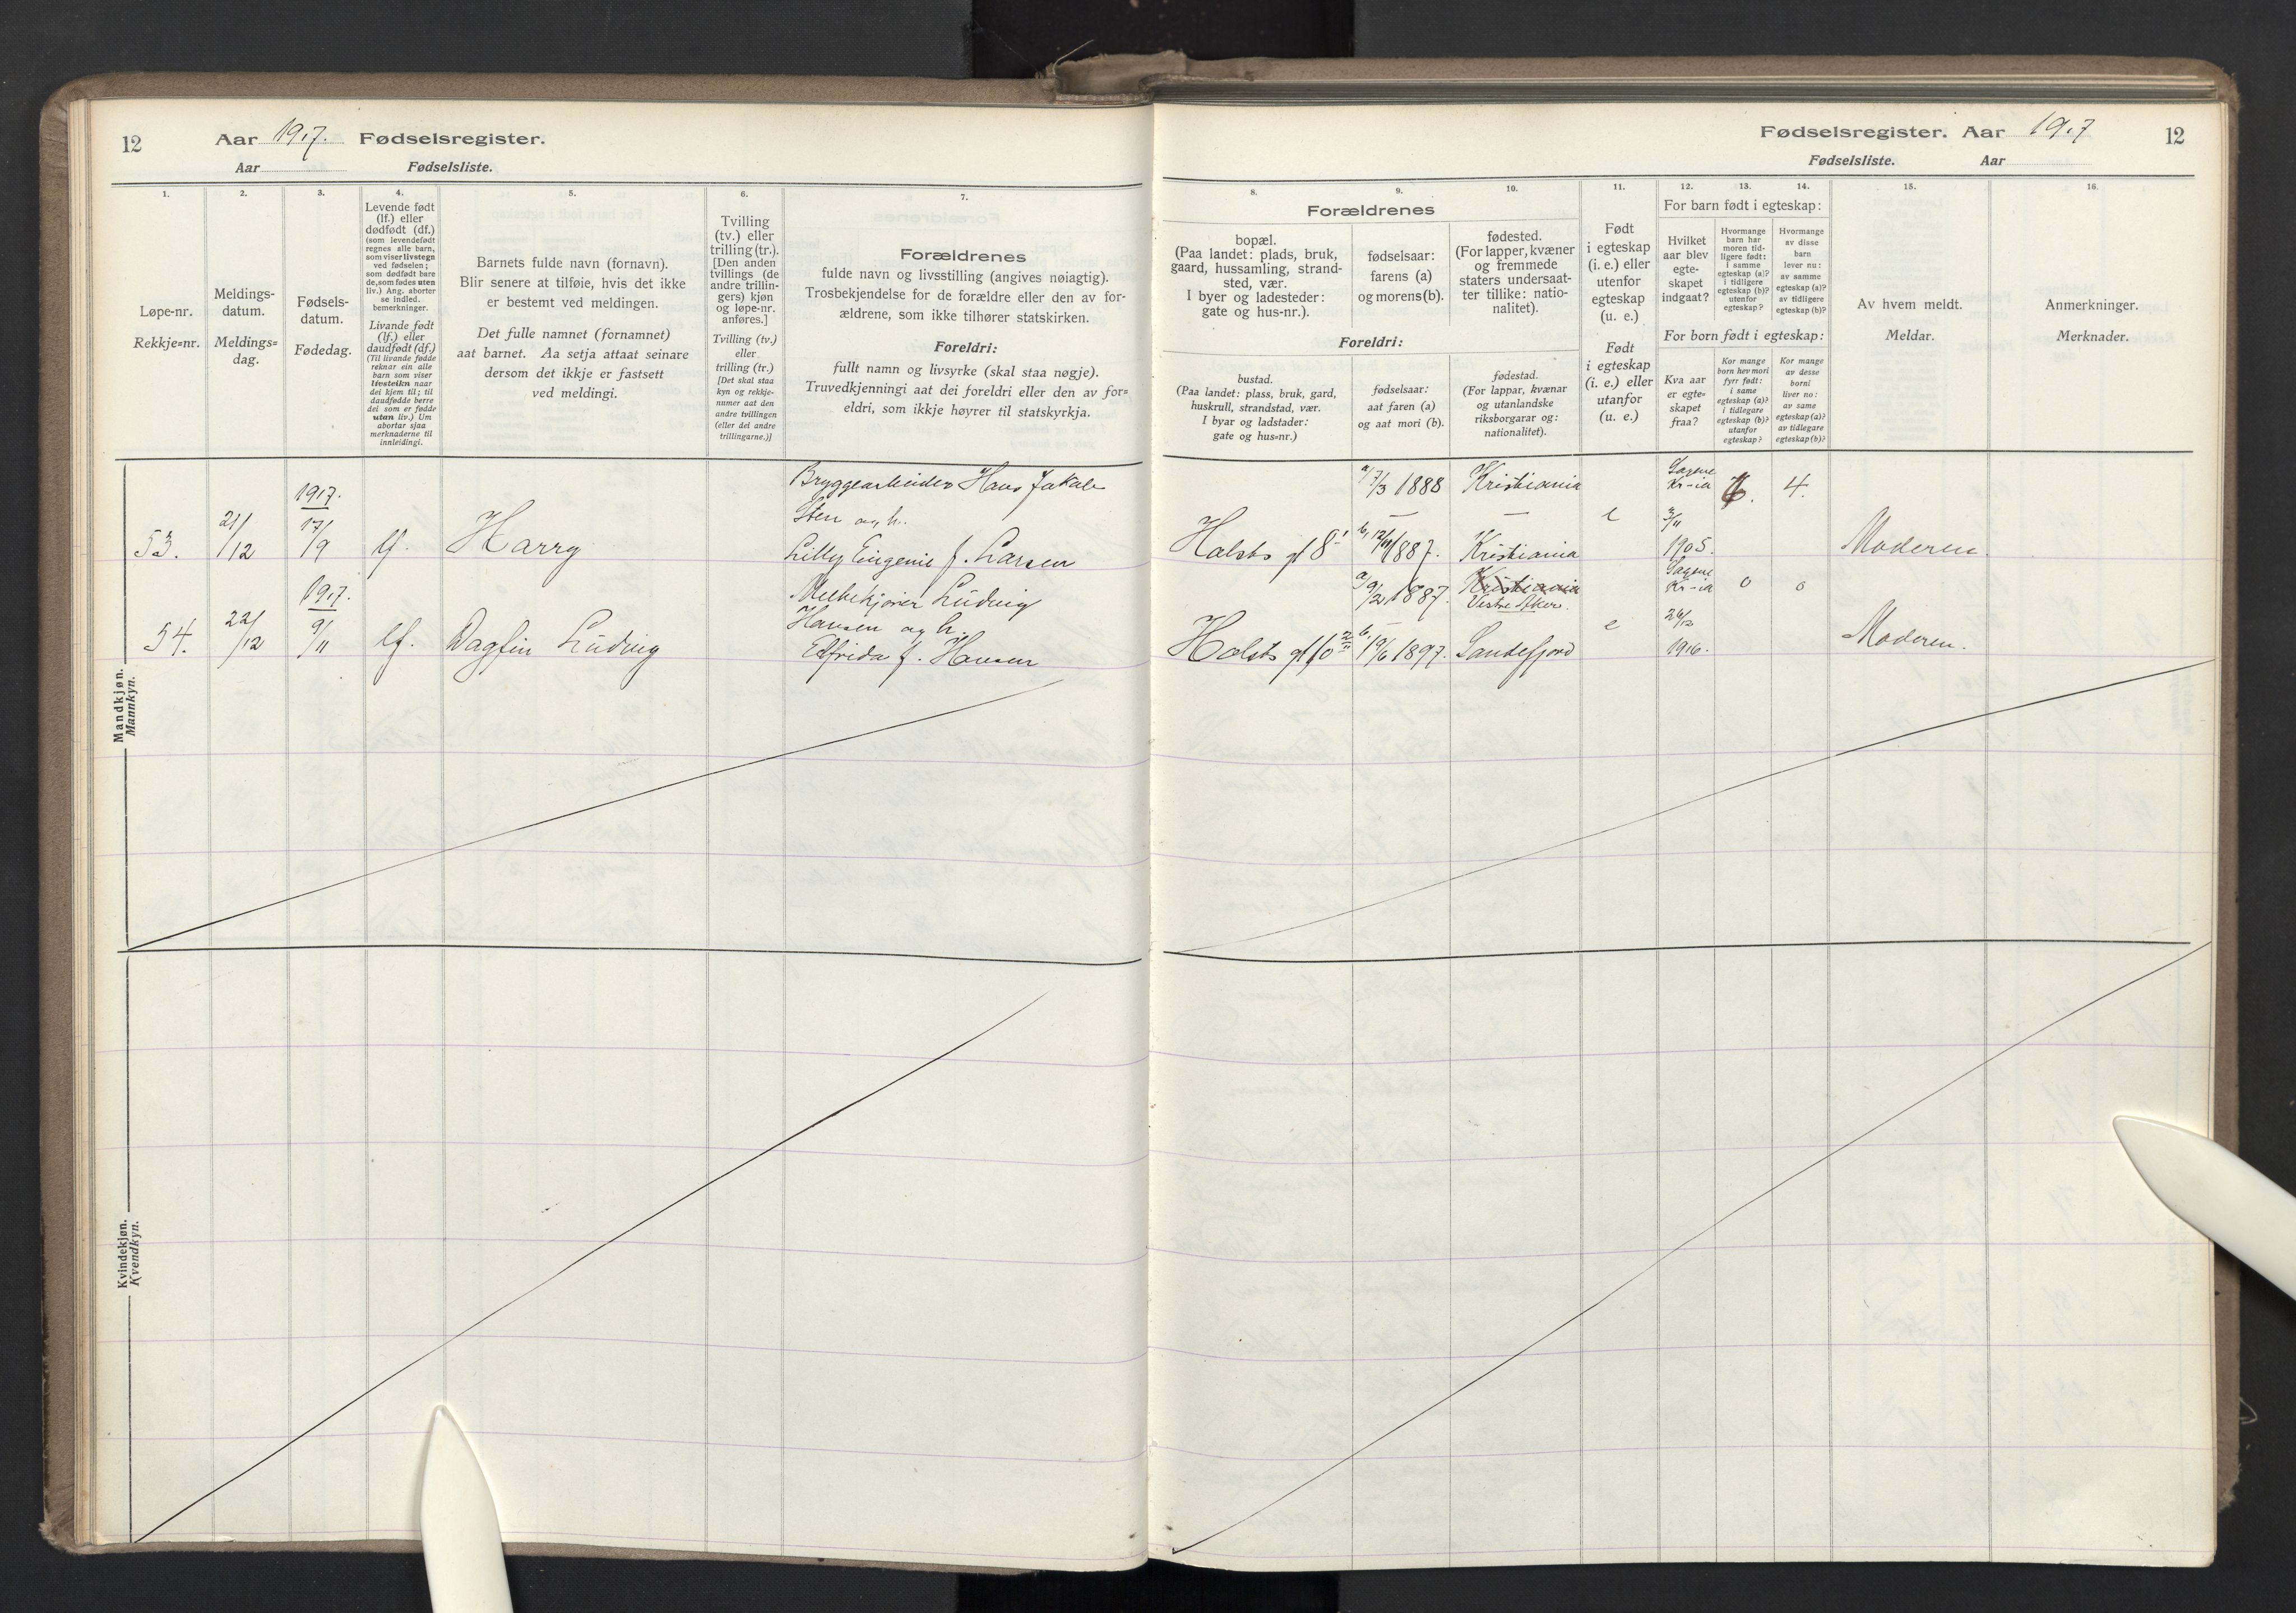 12
Aar 1917. Fødselsregister.
Aar Fødselsliste.
1.
Løpe-nr.
Rekkje=nr.
2.
Meldings-
datum.
Meldings=
dag.
3.
Fødsels-
datum.
Fødedag.
4.
Levende født
(lf.) eller
dødfødt (df.)
(som levendefødt
regnes alle barn,
som viser livstegn
ved fødselen;
som dødfødt bare
de, som fødes uten
liv.) Ang. aborter
se indled.
bemerkninger.
Livande født
(lf.) eller
daudfødt (df.)
(Til livande fødde
reknar ein alle
barn som viser
livsteikn naar
dei kjem til; til
daudfødde berre
dei som er fødde
utan liv.) Um
abortar sjaa
merknaderne til
innleidingi.
5.
Barnets fulde navn (fornavn).
Blir senere at tilføie, hvis det ikke
er bestemt ved meldingen.
Det fulle namnet (fornamnet)
aat barnet. Aa setja attaat seinare
dersom det ikkje er fastsett
ved meldingi.
6.
Tvilling
(tv.) eller
trilling (tr.).
[Den anden
tvillings (de
andre trillin-
gers) kjøn
og løpe-nr.
anføres.]
Tvilling (tv.)
eller
trilling (tr.)
[Det skal staa
kyn og rekkje-
numer aat den
andre tvillingen
(eller dei andre
trillingarne.)]
7.
Forældrenes
fulde navn og livsstilling (angives nøiagtig).
Trosbekjendelse for de forældre eller den av for-
ældrene, som ikke tilhører statskirken.
Foreldri:
fullt namn og livsyrke (skal staa nøgje).
Truvedkjenningi aat dei foreldri eller den av for=
eldri, som ikkje høyrer til statskyrkja.
Mandkjøn.
Mannkyn.
1917.
53. 21/12 17/9 lf. Harry
Bryggearbeider Hans Jakob
Sten og h.
Lilly Eugenie f. Larsen
1917.
54. 22/12 9/11 lf. Dagfin Ludvig
Melkekjører Ludvig
Hansen og h.
Elfrida f. Hansen
Kvindekjøn.
Kvendkyn.
Fødselsregister. Aar 1917
12
Fødselsliste. Aar
8.
Forældrenes
bopæl.
(Paa landet: plads, bruk,
gaard, hussamling, strand-
sted, vær.
I byer og ladesteder:
gate og hus-nr.).
9.
fødselsaar:
farens (a)
og morens (b).
10.
fødested.
(For lapper, kvæner
og fremmede
staters undersaat-
ter tillike: natio-
nalitet).
Foreldri:
bustad.
(Paa landet: plass, bruk, gard,
huskrull, strandstad, vær.
I byar og ladstader:
gate og hus=nr.)
fødselsaar:
aat faren (a)
og aat mori (b).
fødestad.
(For lappar, kvænar
og utanlandske
riksborgarar og:
nationalitet).
11.
Født
i egteskap
(i. e.) eller
utenfor
egteskap
(u. e.)
Født
i egteskap
(i. e.) eller
utanfor
(u. e.)
12.
13.
14.
For barn født i egteskap:
Hvilket
aar blev
egte-
skapet
indgaat?
Hvormange
barn har
moren tid-
ligere født:
i samme
egteskap (a)?
i tidligere
egteskap (b)?
utenfor
egteskap?
Hvormange
av disse
barn
lever nu:
av samme
egteskap (a)?
av tidligere
egteskap (b)?
For born født i egteskap:
Kva aar
er egte=
skapet
fraa?
Kor mange
born hev mori
fyrr født:
i same
egteskap (a)?
i tidlegare
egteskap (b)?
utanfor
egteskap?
Kor mange
av desse
borni
liver no:
av same
egteskap (a)?
av tidlegare
egteskap (b)?
15.
Av hvem meldt.
Meldar.
16.
Anmerkninger.
Merknader.
a 7/3 1888 Kristiania
Sagene
Kr-ia 4.
Holsts gt 8 b, 1887. Kristiania e 3/11
1905. Moderen.
a 9/2 1887. Kristiania
Vestre Aker.
Sagene
Kr-ia 0 0
Holsts gt 10 b, 19/6 1897. Sandefjord e 26/12
1916. Moderen.